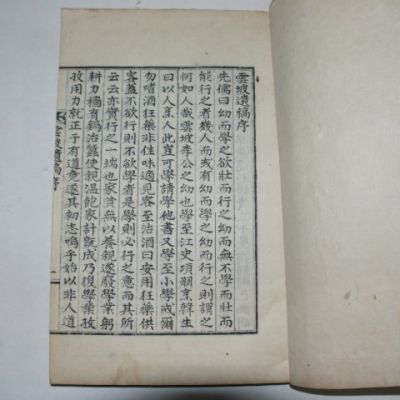 雲坡遺稿序
先儒曰幼而學之欲壯而行之幼而無不學而壯而
能行之者幾人而或有幼而學之幼而行之則謂之
何如人哉雲坡李公之幼也學至江史項羽烹韓生
曰以人烹人此豈可學請學他書又學至小學戒爾
勿嗜酒狂藥非佳味適見客至治酒曰安用狂藥供
客蓋不欲行則不欲學者是學則必行之意而其所
云云亦實行之一端也家貧無以養親遂廢學業躬
耕力穡育鷄治蠶使親溫飽家計旣成乃復學業孜
孜用力就正于有道意遂其初志嗚乎始以非人道
雲坡遺稿序
一